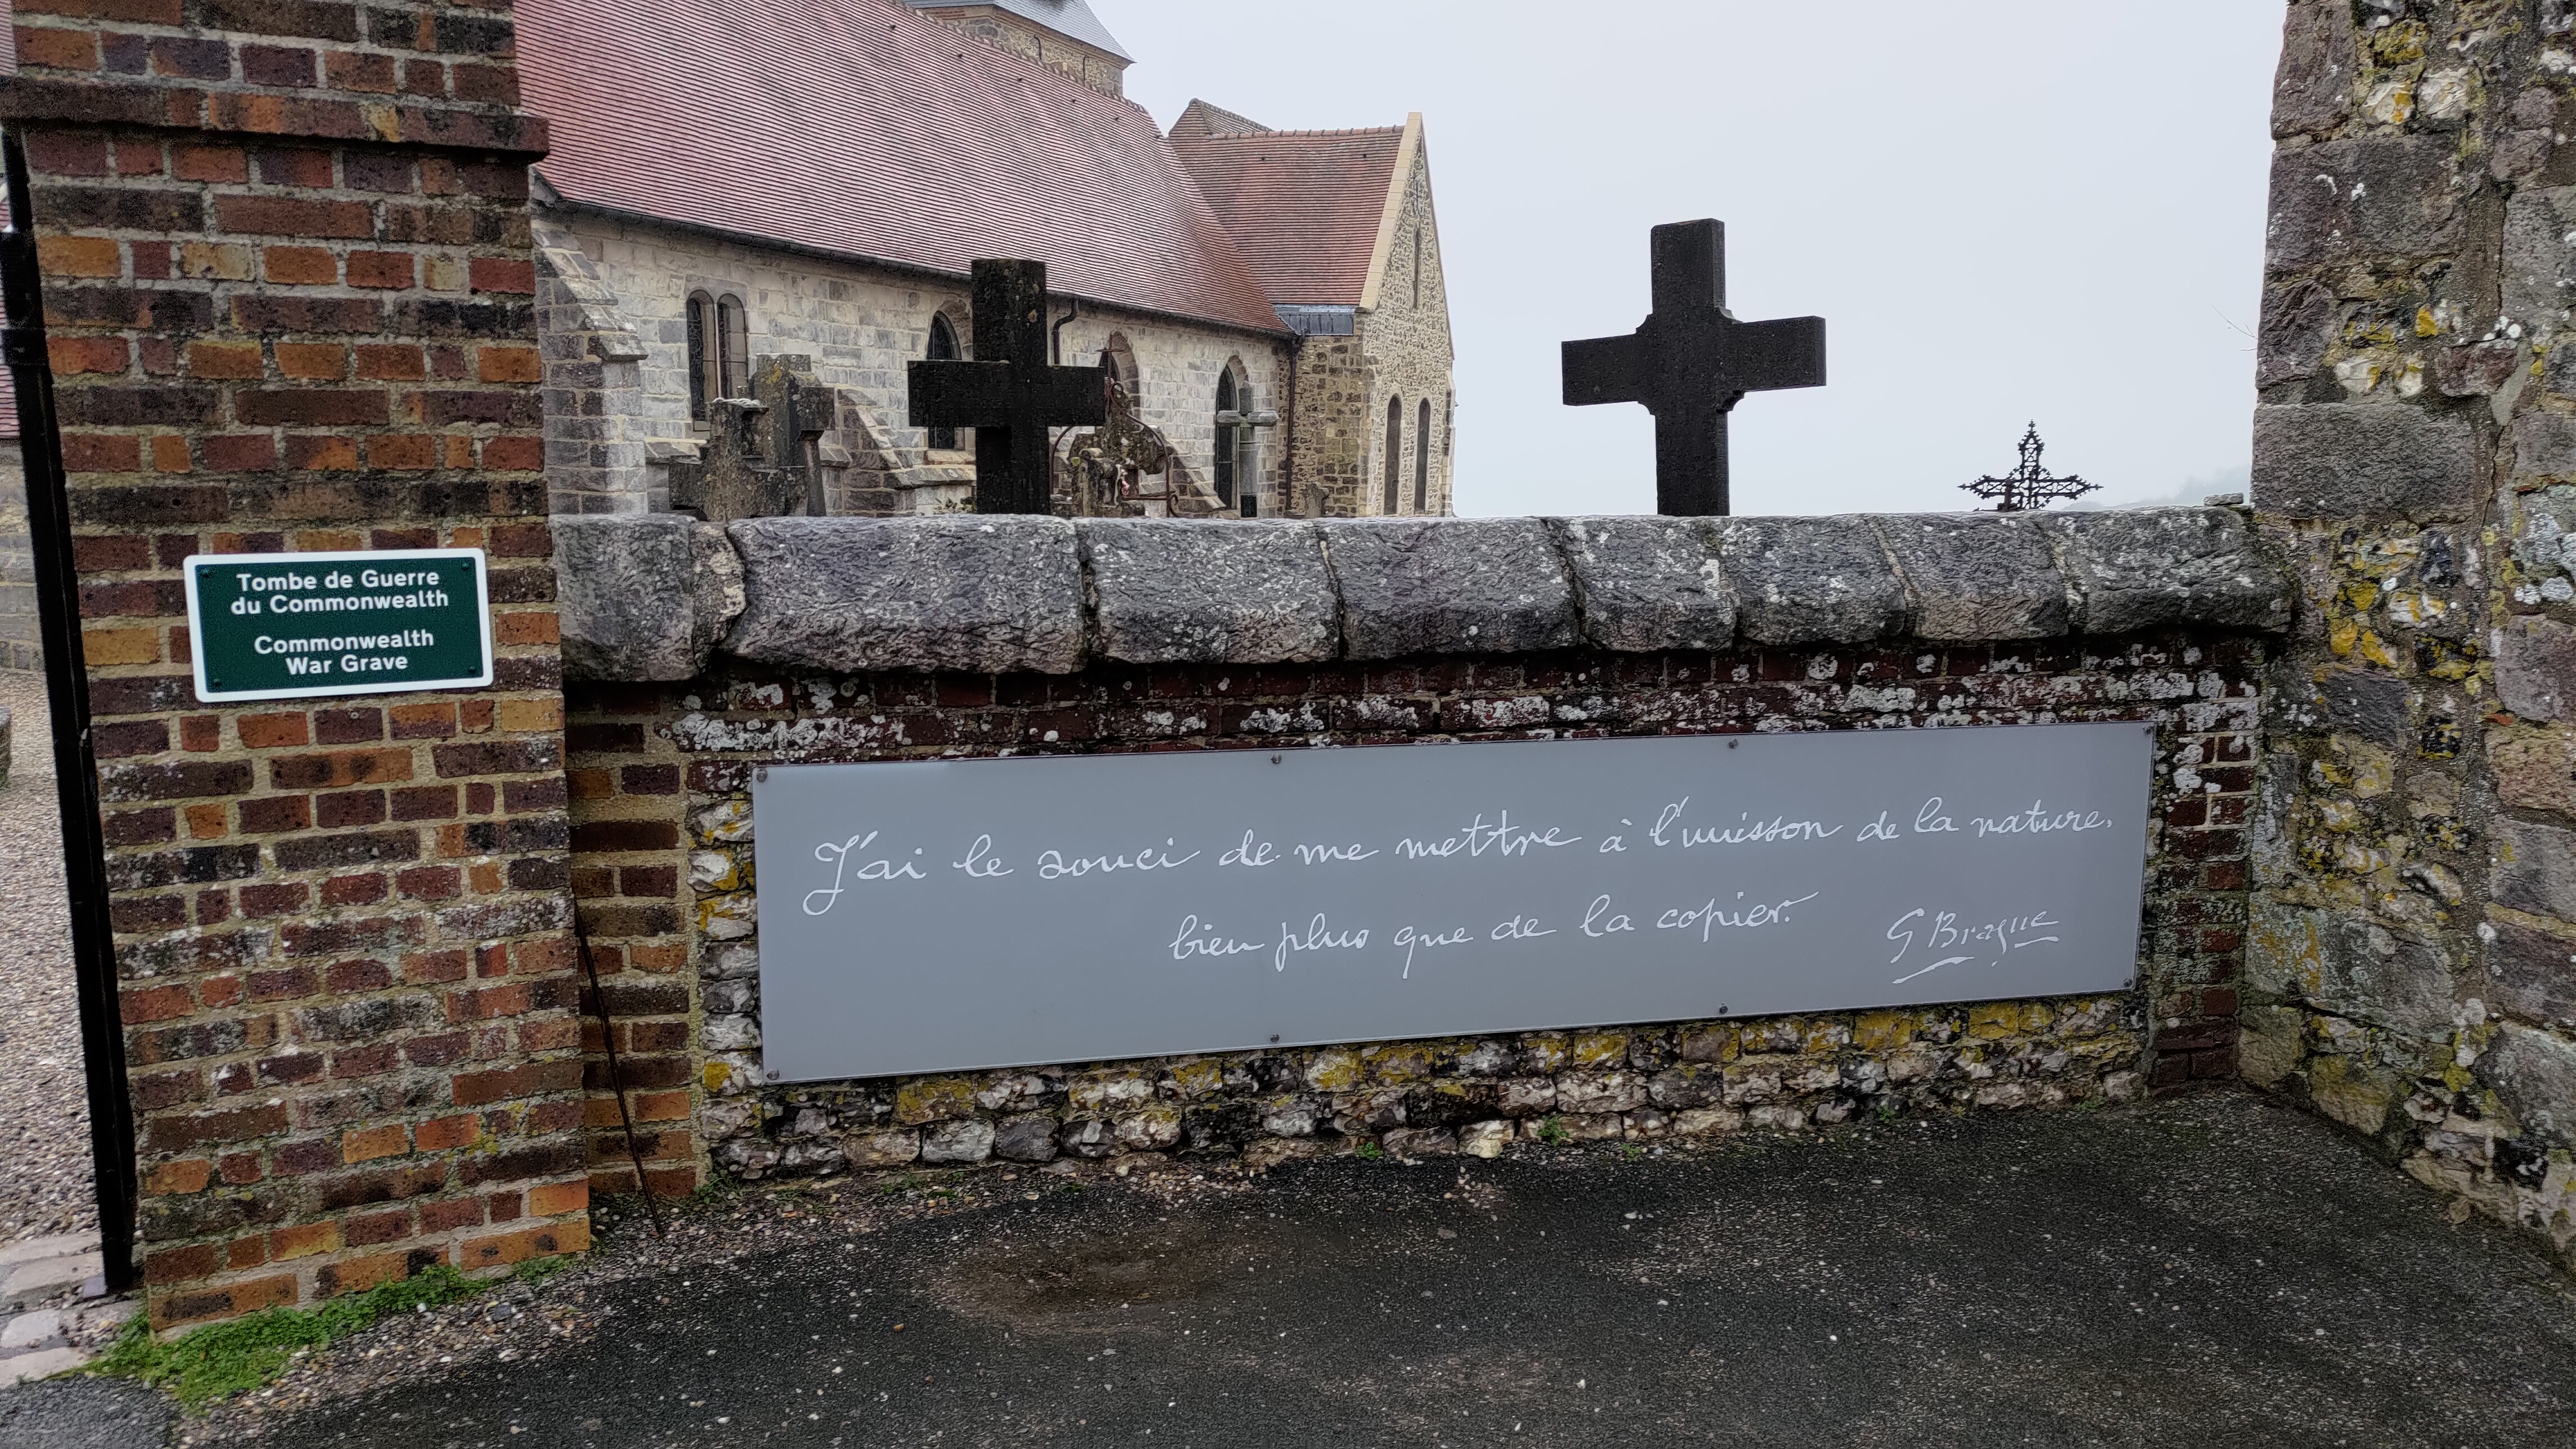 Tombe de Guerre
du Commonwealth
Commonwealth
War Grave
J'ai le souci de me mettre à l'unisson de la nature,
bien plus que de la copier.
G Braque